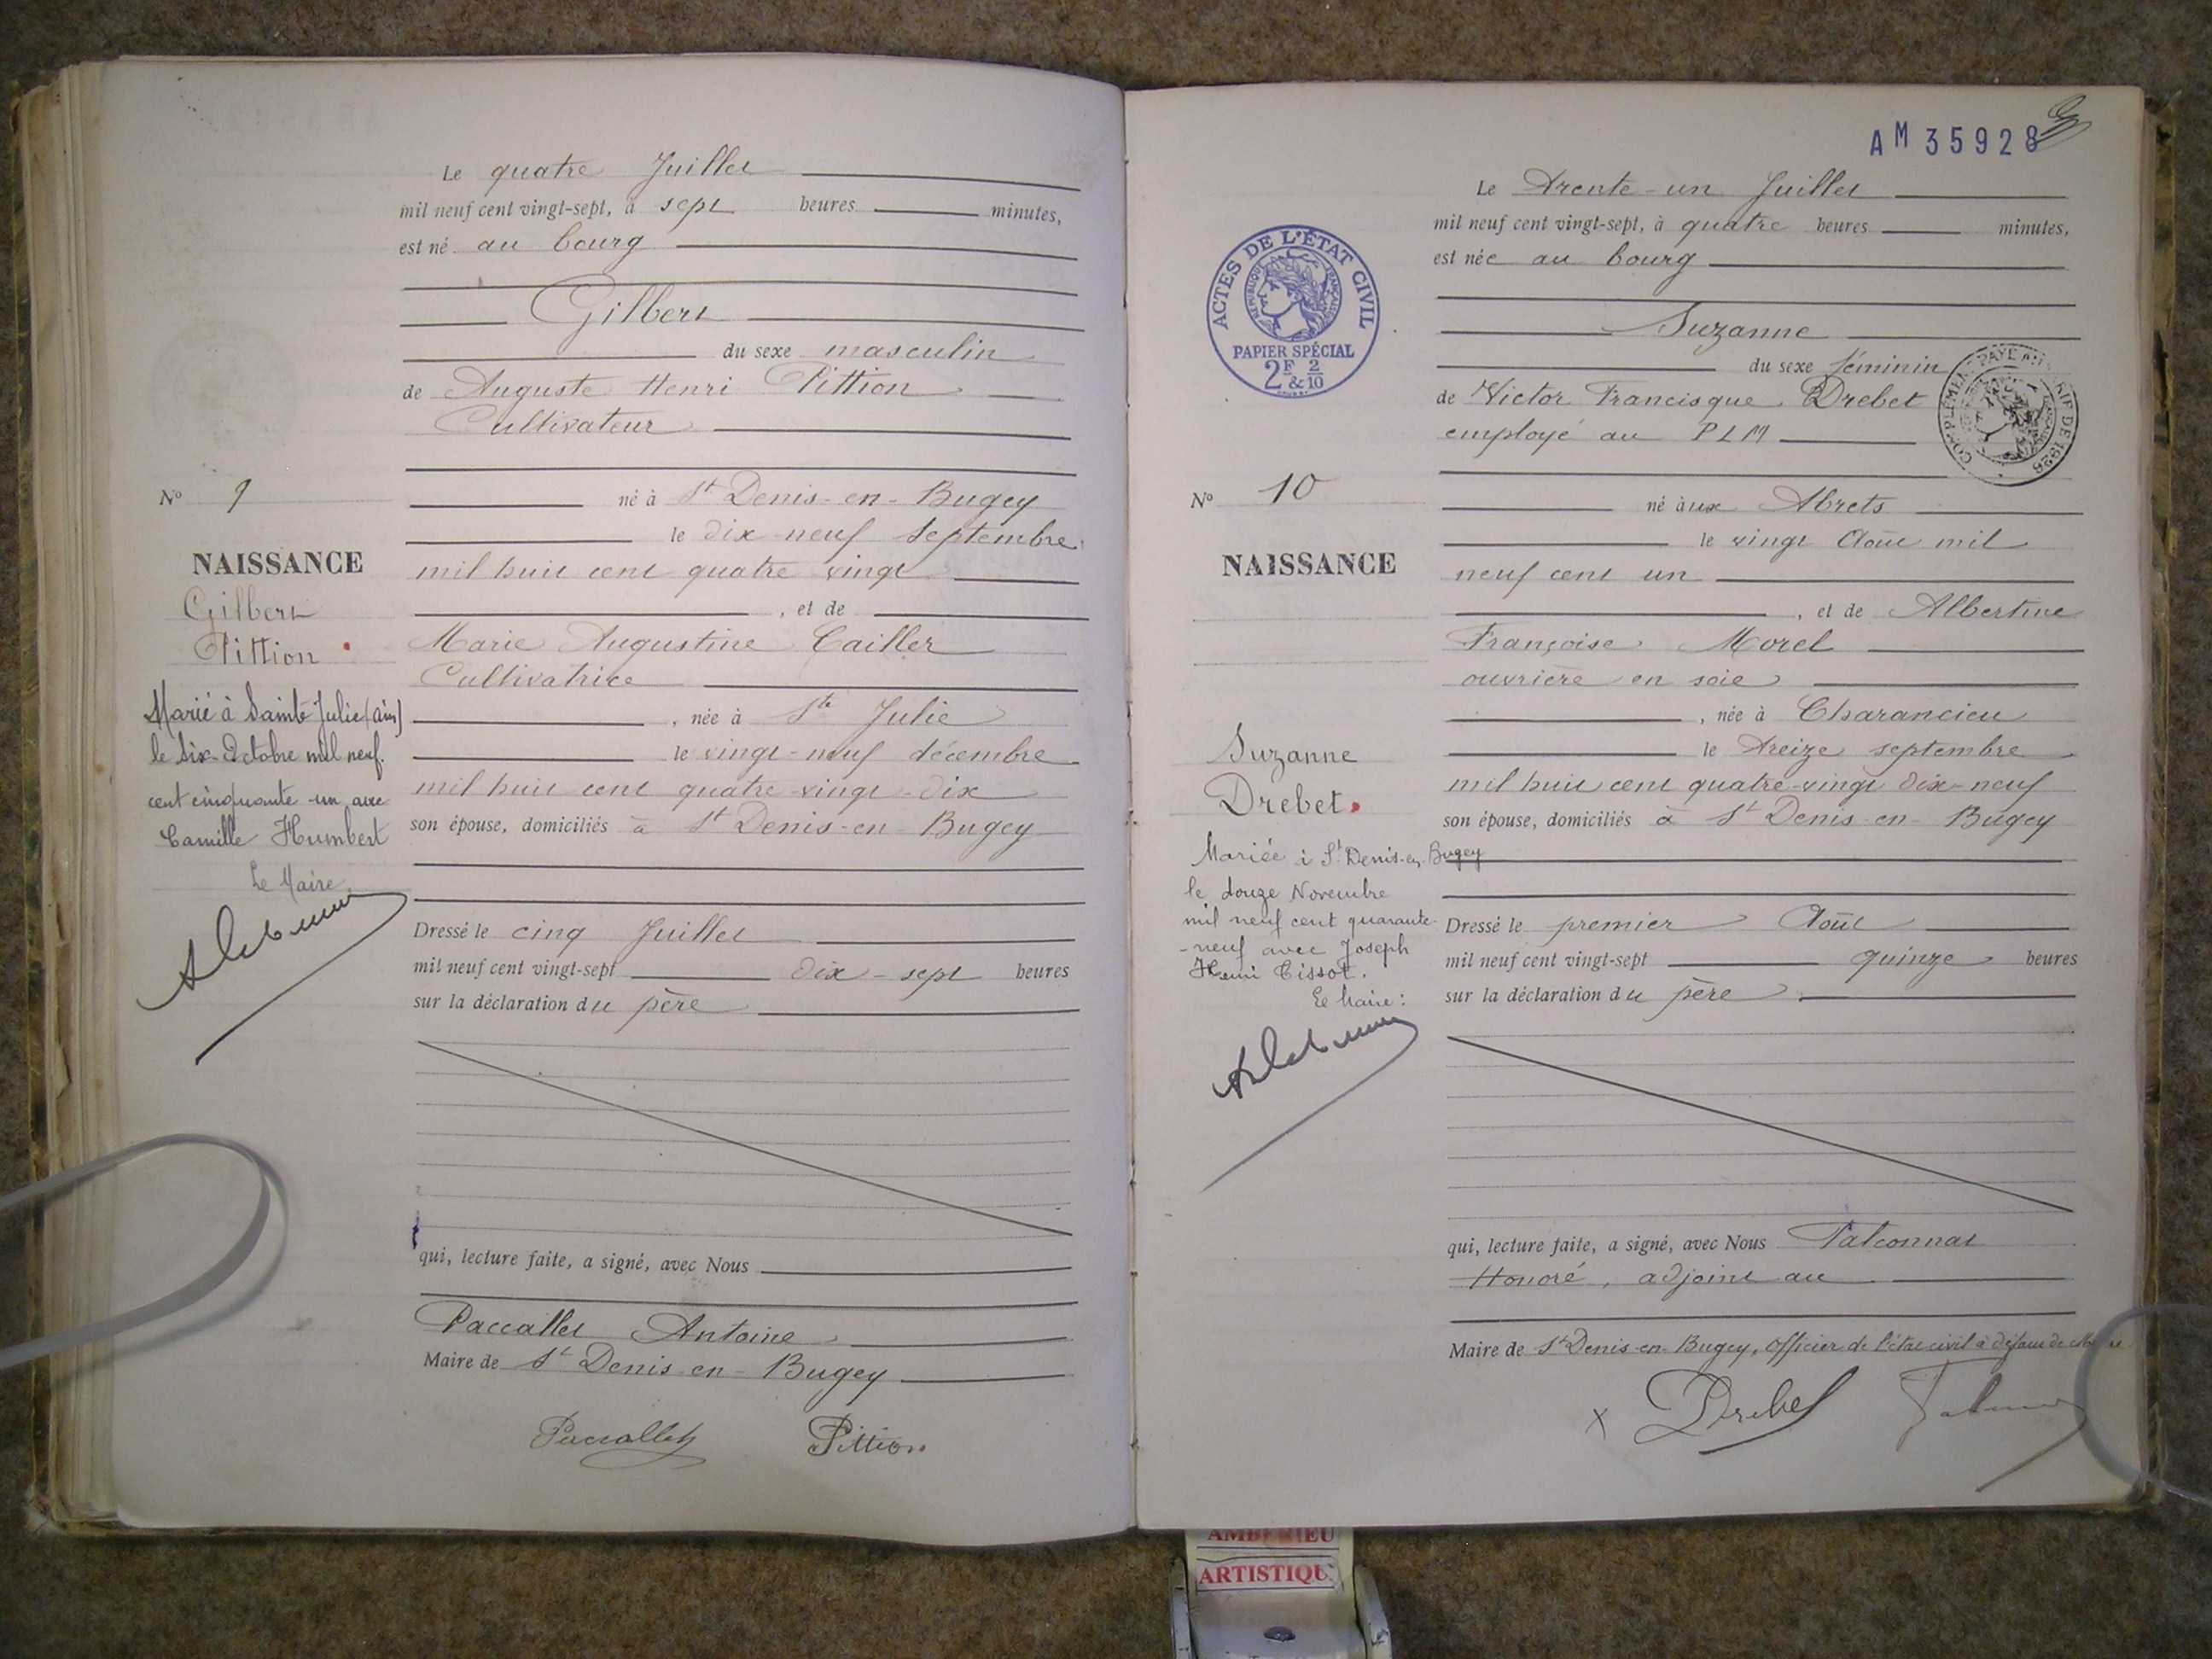 Le quatre Juillet
mil neuf cent vingt-sept, à sept heures minutes,
est né au bourg
Gilbert
du sexe masculin
de Auguste Henri Pittion
Cultivateur
né à St Denis-en-Bugey
le dix neuf Septembre
mil huit cent quatre vingt
, et de
Marie Augustine Cailler
Cultivatrice
, née à Ste Julie
le vingt-neuf décembre
mil huit cent quatre-vingt-dix
son épouse, domiciliés à St Denis-en-Bugey
Dressé le cinq Juillet
mil neuf cent vingt-sept dix-sept heures
sur la déclaration du père
qui, lecture faite, a signé, avec Nous
Paccallet Antoine
Maire de St Denis-en-Bugey
Paccallet Pittion
No 9
NAISSANCE
Gilbert
Pittion
Marié à Sainte Julie (Ain)
le six Octobre mil neuf
cent cinquante-un avec
Camille Humbert
Le Maire
AM 35928
Le Trente-un Juillet
mil neuf cent vingt-sept, à quatre heures minutes,
est née au bourg
Suzanne
du sexe féminin
de Victor Francisque Drebet
employé au PLM
né aux Abrets
le vingt Août mil
neuf cent un
, et de Albertine
Françoise Morel
ouvrière en soie
, née à Charancieu
le Treize septembre
mil huit cent quatre-vingt dix-neuf
son épouse, domiciliés à St Denis-en-Bugey
Dressé le premier Août
mil neuf cent vingt-sept quinze heures
sur la déclaration du père
qui, lecture faite, a signé, avec Nous
Honoré, adjoint au
Maire de St Denis-en-Bugey, Officier de l'état civil à défaut de
Drebet
ACTES DE L'ÉTAT CIVIL
RÉPUBLIQUE FRANÇAISE
PAPIER SPÉCIAL
2F & 2/10
No 10
NAISSANCE
Suzanne
Drebet
Mariée à St Denis-en-Bugey
le douze Novembre
mil neuf cent quarante-
-neuf avec Joseph
Henri Tissot.
Le Maire:
AMBERIEU
ARTISTIQU